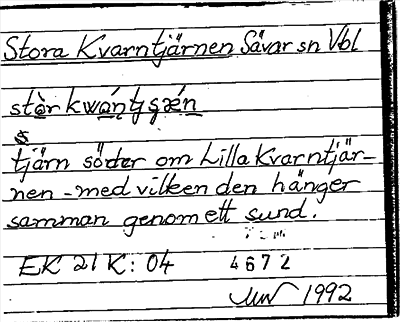 Stora Kvarntjärnen Sävar sn Vbl
tjärn söder om Lilla Kvarntjär-
nen - med vilken den hänger
samman genom ett sund.
EK 21 K: 04 4672
1992